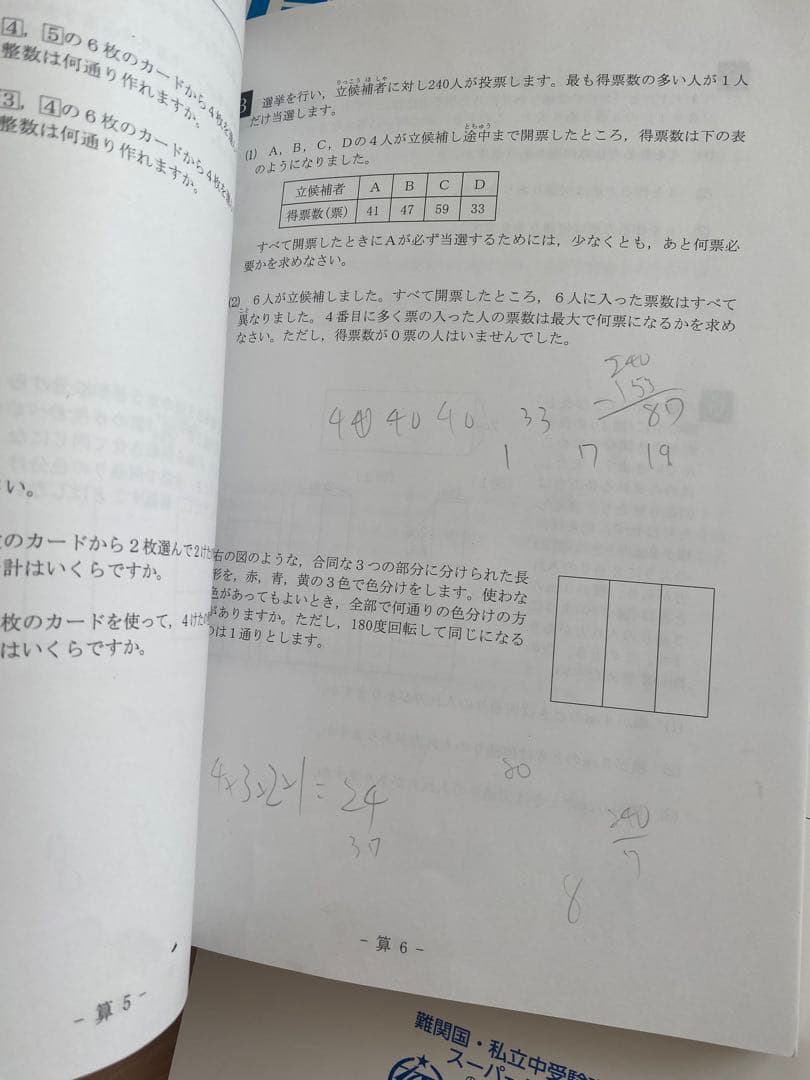 4, 5の6枚のカードから4枚を
整数は何通り作れますか。
3, 4の6枚のカードから4枚を
整数は何通り作れますか。
さい。
のカードから2枚選んで2けた
計はいくらですか。
枚のカードを使って,4けた
はいくらですか。
- 算 5 -
選挙を行い,立候補者に対し240人が投票します。最も得票数の多い人が1人
だけ当選します。
(1) A,B,C,Dの4人が立候補し途中まで開票したところ,得票数は下の表
のようになりました。
立候補者 A B C D
得票数(票) 41 47 59 33
すべて開票したときにAが必ず当選するためには,少なくとも,あと何票必
要かを求めなさい。
(2) 6人が立候補しました。すべて開票したところ,6人に入った票数はすべて
異なりました。4番目に多く票の入った人の票数は最大で何票になるかを求め
なさい。ただし,得票数が0票の人はいませんでした。
240
-153
87
40 40 33
1 7 19
右の図のような,合同な3つの部分に分けられた長
形を,赤,青,黄の3色で色分けをします。使わな
色があってもよいとき,全部で何通りの色分けの方
がありますか。ただし,180度回転して同じになる
のは1通りとします。
4×3×2×1=24
37
80
240
7
8
- 算 6 -
難関国・私立中受験
スーパー